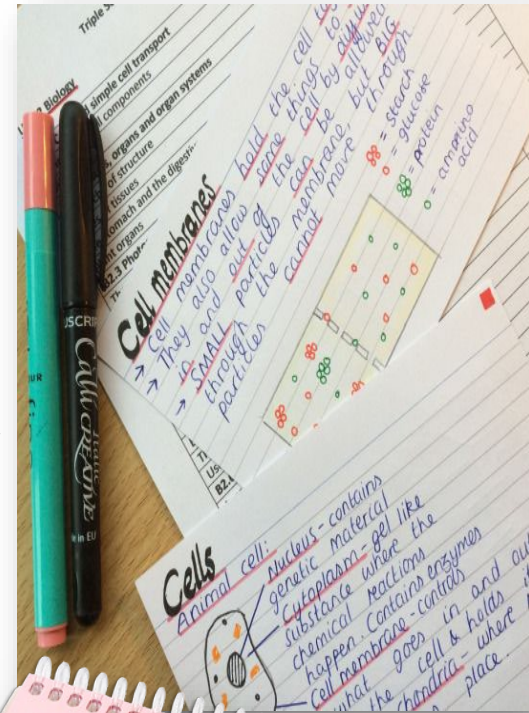 Triple
Biology
simple cell transport
components
organs and organ systems
of structure
tissues
stomach and the digesti
organs
B2.3
Cell membranes
→ Cell membranes hold the cell
→ They also allow some things to
in and out of the cell by
→ SMALL particles can be allowed
through the membrane, but BIG
particles cannot move through
= starch
= glucose
= protein
= amino
acid
Cells
Animal cell:
Nucleus - contains
genetic material
Cytoplasm - gel like
substance where the
chemical reactions
happen. Contains enzymes
Cell membrane - controls
what goes in and
the cell & holds
chondria - where
place.
CREATIVE
in EU
B2.